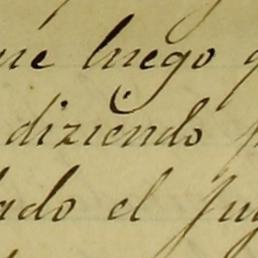 ue luego
diziendo
ado el Jug